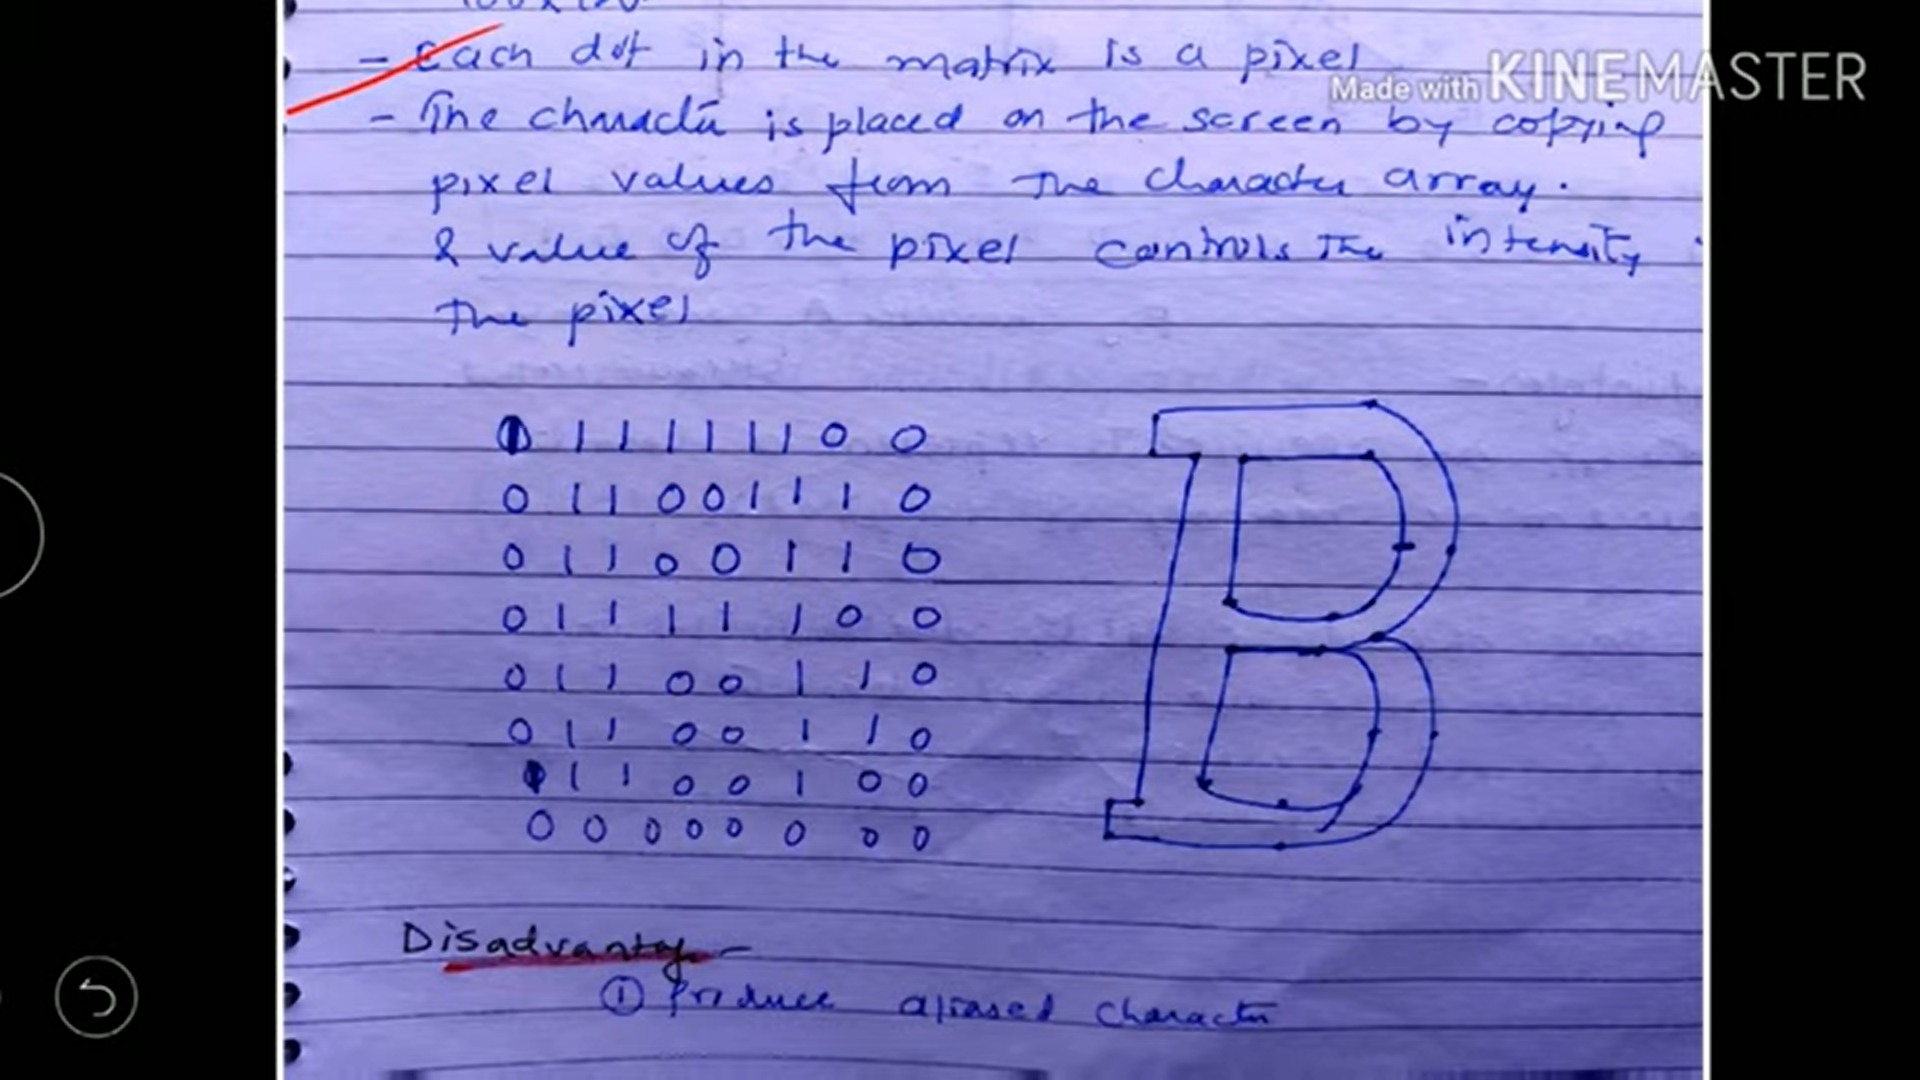 - Each dot in the matrix is a pixel
Made with KINEMASTER
- The character is placed on the screen by copying
pixel values from the character array.
& value of the pixel controls the intensity
the pixel
0 1 1 1 1 1 1 0 0
0 1 1 0 0 1 1 1 0
0 1 1 0 0 1 1 0
0 1 1 1 1 1 0 0
0 1 1 0 0 1 1 0
0 1 1 0 0 1 1 0
1 1 0 0 1 0 0
0 0 0 0 0 0 0 0
B
Disadvantag -
① Produce aliased character